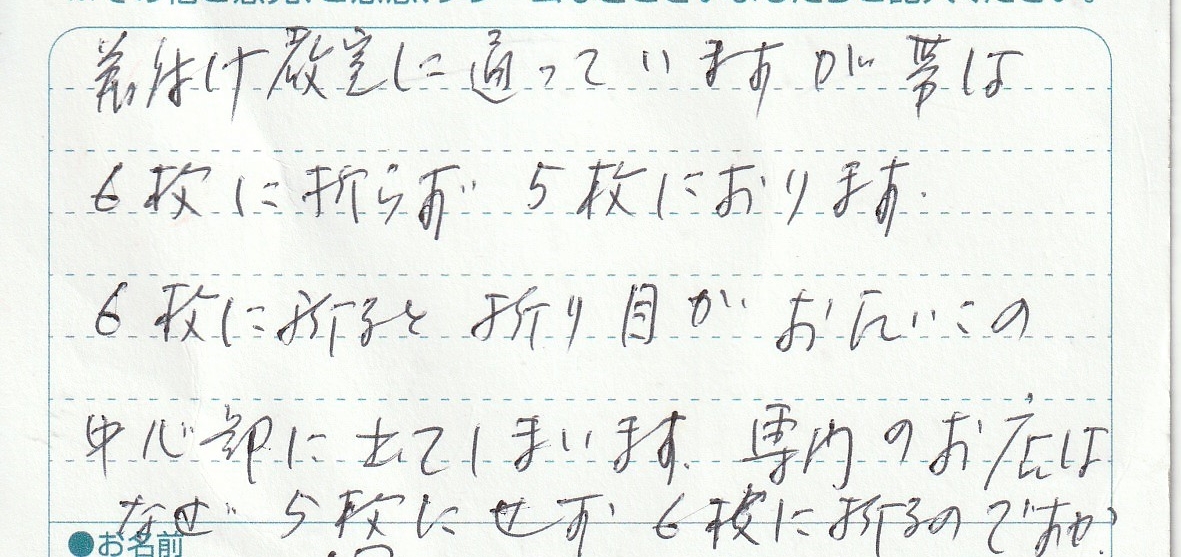 着付け教室に通っていますが帯は
6枚に折らず 5枚におります.
6枚に折ると折り目がおたいこの
中心部に出てしまいます. 専門のお店は
なぜ 5枚にせず 6枚に折るのですか?
●お名前